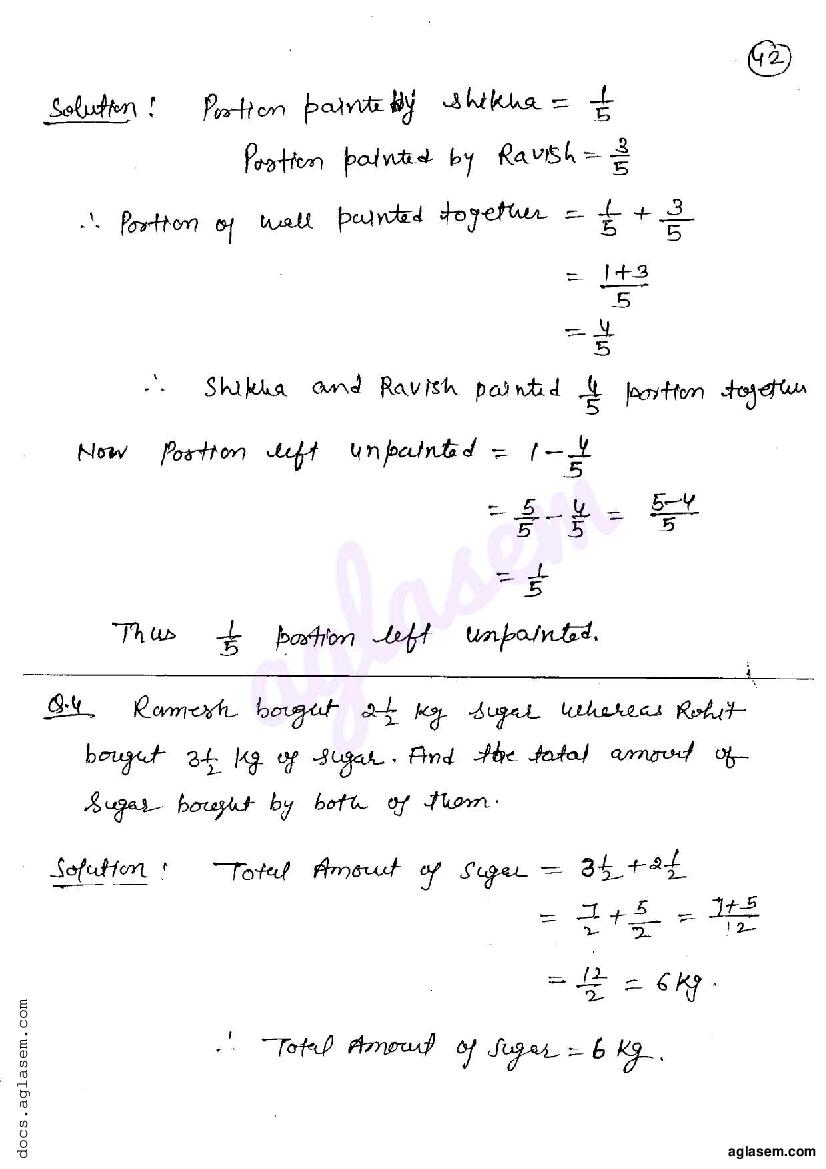 42
Solution: Portion painted by Shikha = 1/5
Portion painted by Ravish = 3/5
∴ Portion of wall painted together = 1/5 + 3/5
= 1+3/5
= 4/5
∴ Shikha and Ravish painted 4/5 portion together
Now Portion left unpainted = 1 - 4/5
= 5/5 - 4/5 = 5-4/5
= 1/5
Thus 1/5 portion left unpainted.
Q.4 Ramesh bought 2 1/2 kg sugar whereas Rohit
bought 3 1/2 kg of sugar. And the total amount of
sugar bought by both of them.
Solution: Total Amount of sugar = 3 1/2 + 2 1/2
= 7/2 + 5/2 = 7+5/12
= 12/2 = 6 kg.
∴ Total Amount of sugar = 6 kg.
aglasem
docs.aglasem.com
aglasem.com